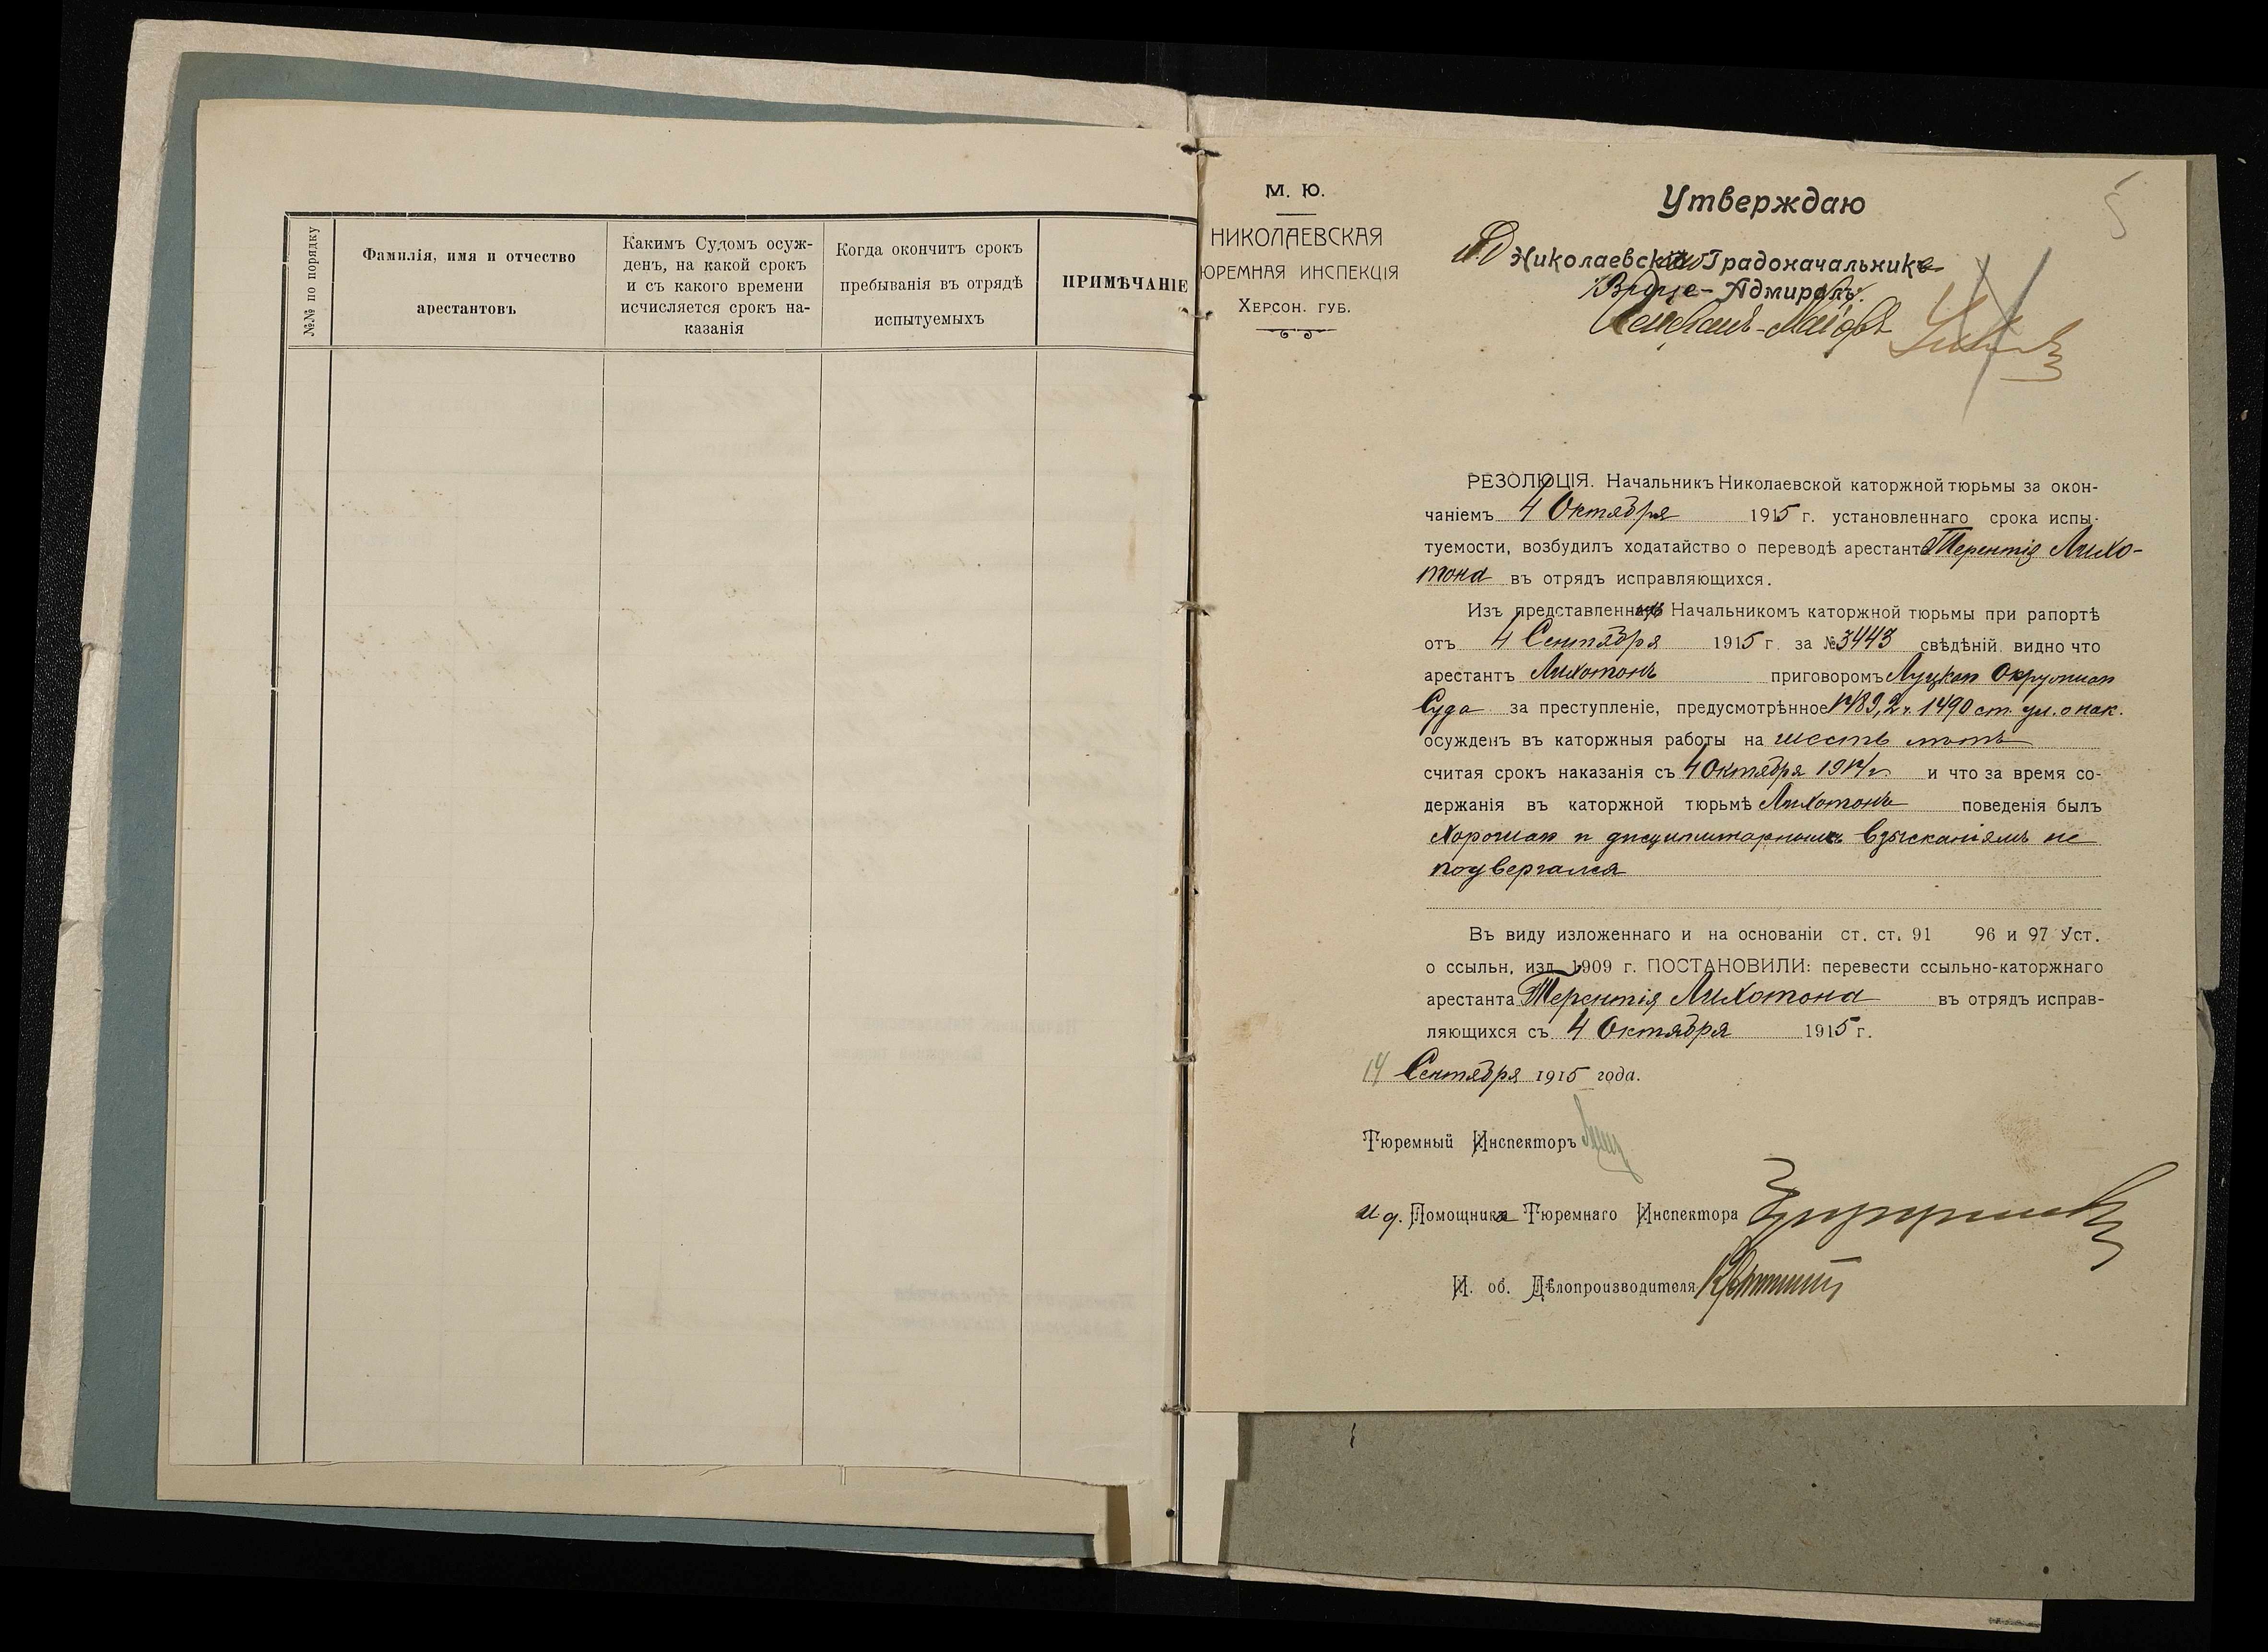 №№ по порядку
Фамилія, имя и отчество
арестантовъ
Какимъ Судомъ осуж-
денъ, на какой срокъ
и съ какого времени
исчисляется срокъ на-
казанія
Когда окончитъ срокъ
пребыванія въ отрядѣ
испытуемыхъ
ПРИМѢЧАНІЕ
М. Ю.
НИКОЛАЕВСКАЯ
ЮРЕМНАЯ ИНСПЕКЦІЯ
ХЕРСОН. ГУБ.
5
Утверждаю
Николаевскаго Градоначальника
Вице-Адмиралъ.
РЕЗОЛЮЦІЯ. Начальникъ Николаевской каторжной тюрьмы за окон-
чаніемъ 4 Октября 1915 г. установленнаго срока испы-
туемости, возбудилъ ходатайство о переводѣ арестанта Терентія Лихо-
тона въ отрядъ исправляющихся.
Изъ представленныхъ Начальникомъ каторжной тюрьмы при рапортѣ
отъ 4 Сентября 1915 г. за № 3443 свѣдѣній видно что
арестантъ Лихотонъ приговоромъ Луцкаго Окружнаго
Суда за преступленіе, предусмотрѣнное 1489, 2 ч. 1490 ст. ул. о нак.
осужденъ въ каторжныя работы на шесть лѣтъ
считая срокъ наказанія съ 4 Октября 1914 г. и что за время со-
держанія въ каторжной тюрьмѣ Лихотонъ поведенія былъ
хорошаго и дисциплинарнымъ взысканіямъ не
подвергался
Въ виду изложеннаго и на основаніи ст. ст. 91 96 и 97 Уст.
о ссыльн, изд. 1909 г. ПОСТАНОВИЛИ: перевести ссыльно-каторжнаго
арестанта Терентія Лихотона въ отрядъ исправ-
ляющихся съ 4 Октября 1915 г.
14 Сентября 1915 года.
Тюремный Инспекторъ
И д. Помощника Тюремнаго Инспектора
И. об. Дѣлопроизводителя